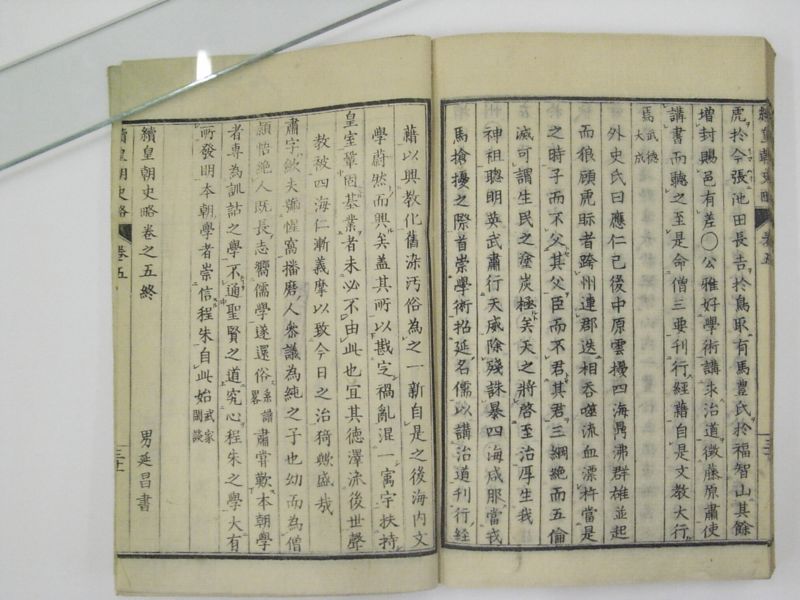 續皇朝史略 卷五
虎於令張池田長吉於鳥取有馬豊氏於福智山其餘
増封賜邑有差〇公雅好學術講求治道徴藤原肅使
講書而聽之至是命僧三要刊行經籍自是文教大行
焉武德大成
外史氏曰應仁己後中原雲擾四海鼎沸群雄並起
而狼顧虎眎者跨州連郡迭相吞噬流血漂杵當是
之時子而不父其父臣而不君其君三綱絶而五倫
滅可謂生民之塗炭極矣天之將啓至治厚生我
神祖聰明英武肅行天威除殘誅暴四海咸服當戎
馬搶擾之際首崇學術招延名儒以講治道刊行經
籍以興教化舊染汚俗為之一新自是之後海内文
學蔚然而興矣盖其所以戡定禍亂混一寓宇扶持
皇室鞏固基業者未必不由此也宜其德澤流後世聲
教被四海仁漸義摩以致今日之治猗歟盛哉
肅字斂夫號惺窩播磨人參議為純之子也幼而為僧
頴悟絶人既長志嚮儒學遂還俗系譜畧肅甞歎本朝學
者專為訓詁之學不通聖賢之道究心程朱之學大有
所發明本朝學者崇信程朱自此始武家閑談
續皇朝史略卷之五終
男延昌書
續皇朝史略 卷五 三十一